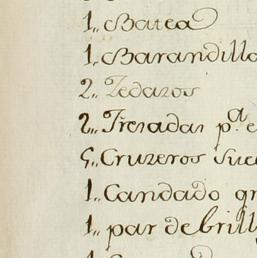 1,, Batea
1,, Barandillo
2,, Zedazos
2,, Fresadas p.ª e
5,, Cruzeros Sue
1,, Candado gr
1,, par de brill